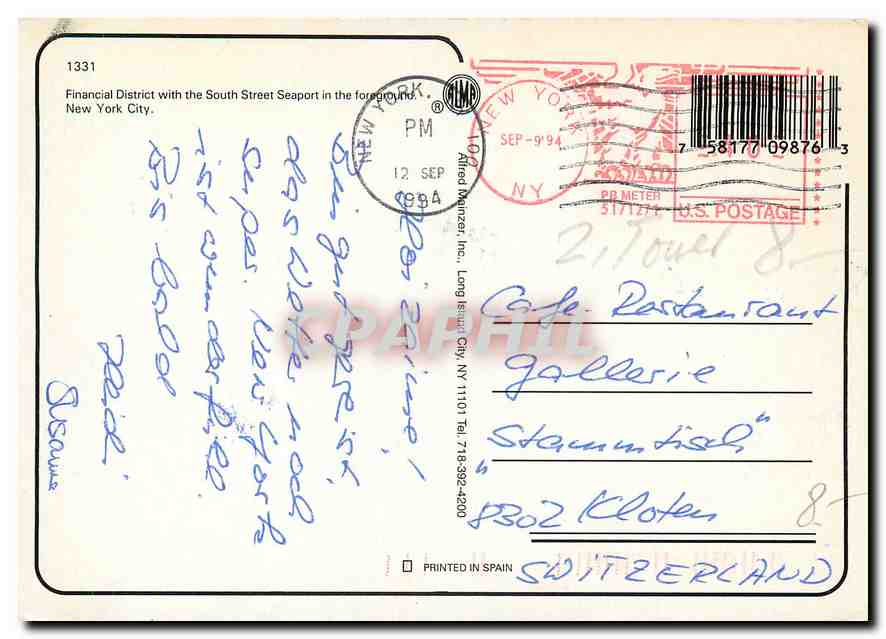 1331
Financial District with the South Street Seaport in the foreground.
New York City.
Hoi zäme!
Bei gut
das Wetter noch
super. New York
ist wunderschön.
Bis bald
Heidi
Susanne
NEW YORK, NY 100
PM
12 SEP
1994
® ALMA
Alfred Mainzer, Inc., Long Island City, NY 11101 Tel. 718-392-4200
NEW YORK
SEP-9'94
NY
PB METER
U.S. POSTAGE
7 58177 09876 3
2, Tower 8.-
Cafe Restaurant
Gallerie
"Stammtisch"
8302 Kloten
8.-
SWITZERLAND
PRINTED IN SPAIN
CPAPHIL